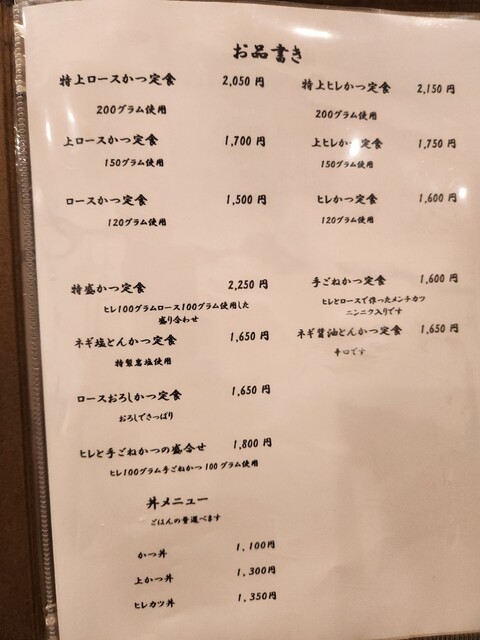 お品書き
特上ロースかつ定食 2,050 円
200グラム使用
上ロースかつ定食 1,700 円
150グラム使用
ロースかつ定食 1,500 円
120グラム使用
特盛かつ定食 2,250 円
ヒレ100グラムロース100グラム使用した
盛り合わせ
ネギ塩とんかつ定食 1,650 円
特製岩塩使用
ロースおろしかつ定食 1,650 円
おろしでさっぱり
ヒレと手ごねかつの盛合せ 1,800 円
ヒレ100グラム手ごねかつ 100 グラム使用
特上ヒレかつ定食 2,150 円
200グラム使用
上ヒレかつ定食 1,750 円
150グラム使用
ヒレかつ定食 1,600 円
120グラム使用
手ごねかつ定食 1,600 円
ヒレとロースで作ったメンチカツ
ニンニク入りです
ネギ醤油とんかつ定食 1,650 円
辛口です
丼メニュー
ごはんの量選べます
かつ丼 1,100円
上かつ丼 1,300円
ヒレカツ丼 1,350円